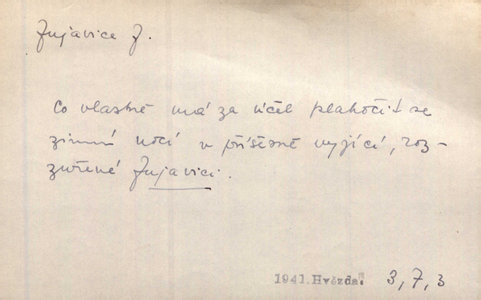 fujavice f.
Co vlastně má za účel plahočit se
zimní nocí v příšerně vyjící, roz-
zuřené fujavici.
1941. Hvězda. 3, 7, 3